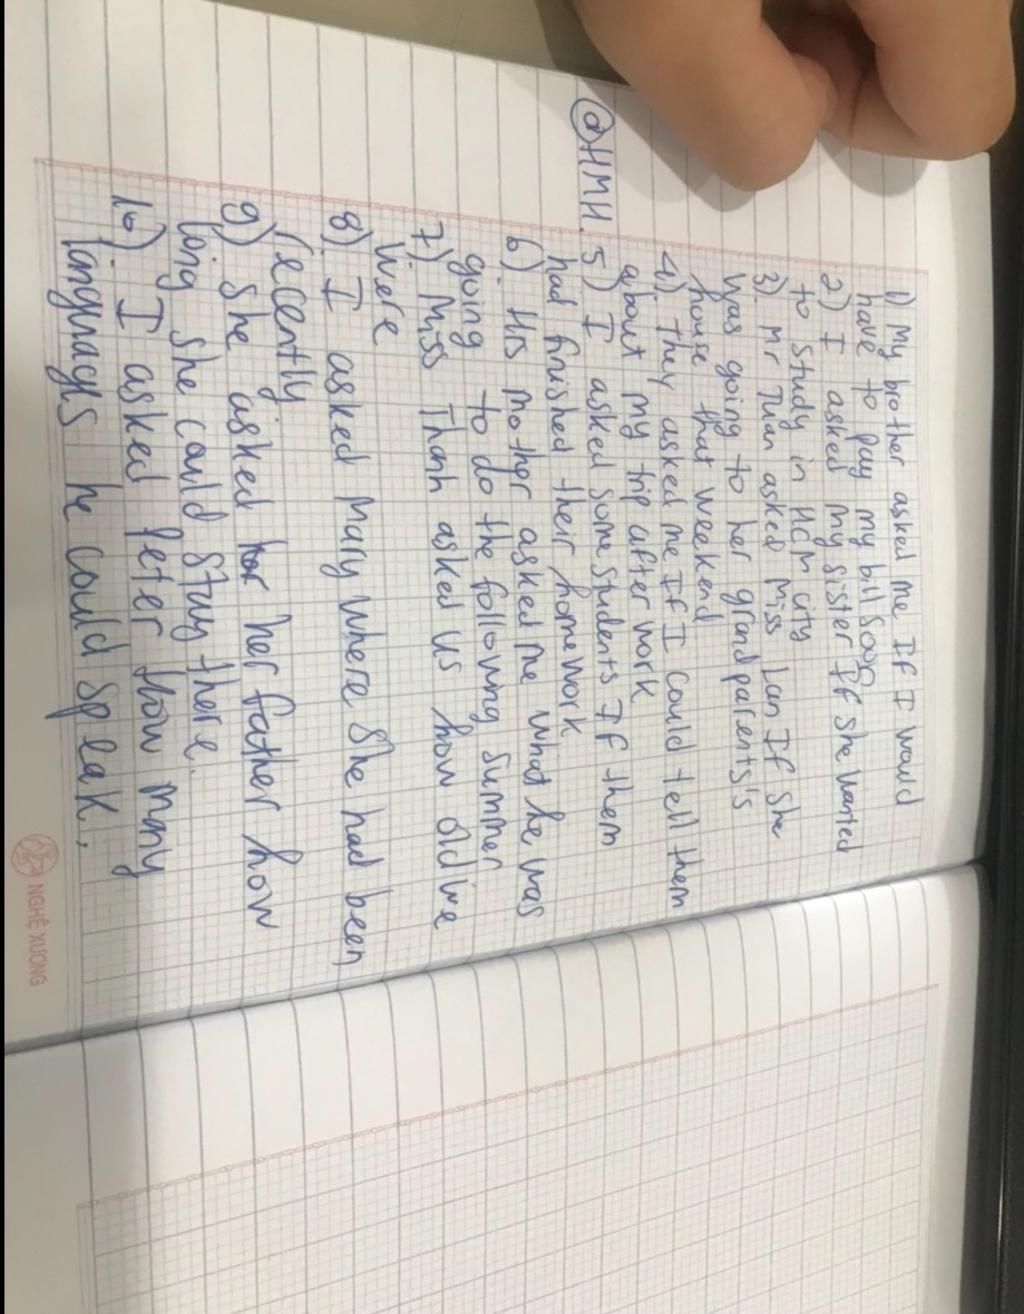 1) My brother asked me If I would
have to pay my bill soon
2) I asked my sister If she wanted
to study in HCM city
3) Mr Tuan asked Miss Lan If she
was going to her grandparents's
house that weekend
4) They asked me If I could tell them
about my trip after work
@HMH. 5) I asked some students If them
had finished their homework
6) His mother asked me what he was
going to do the following summer
7) Miss Thanh asked us how old we
were
8) I asked Mary where she had been
recently
9) She asked her father how
long she could stay there.
10) I asked Peter how many
languages he could speak.
NGHỆ XUONG